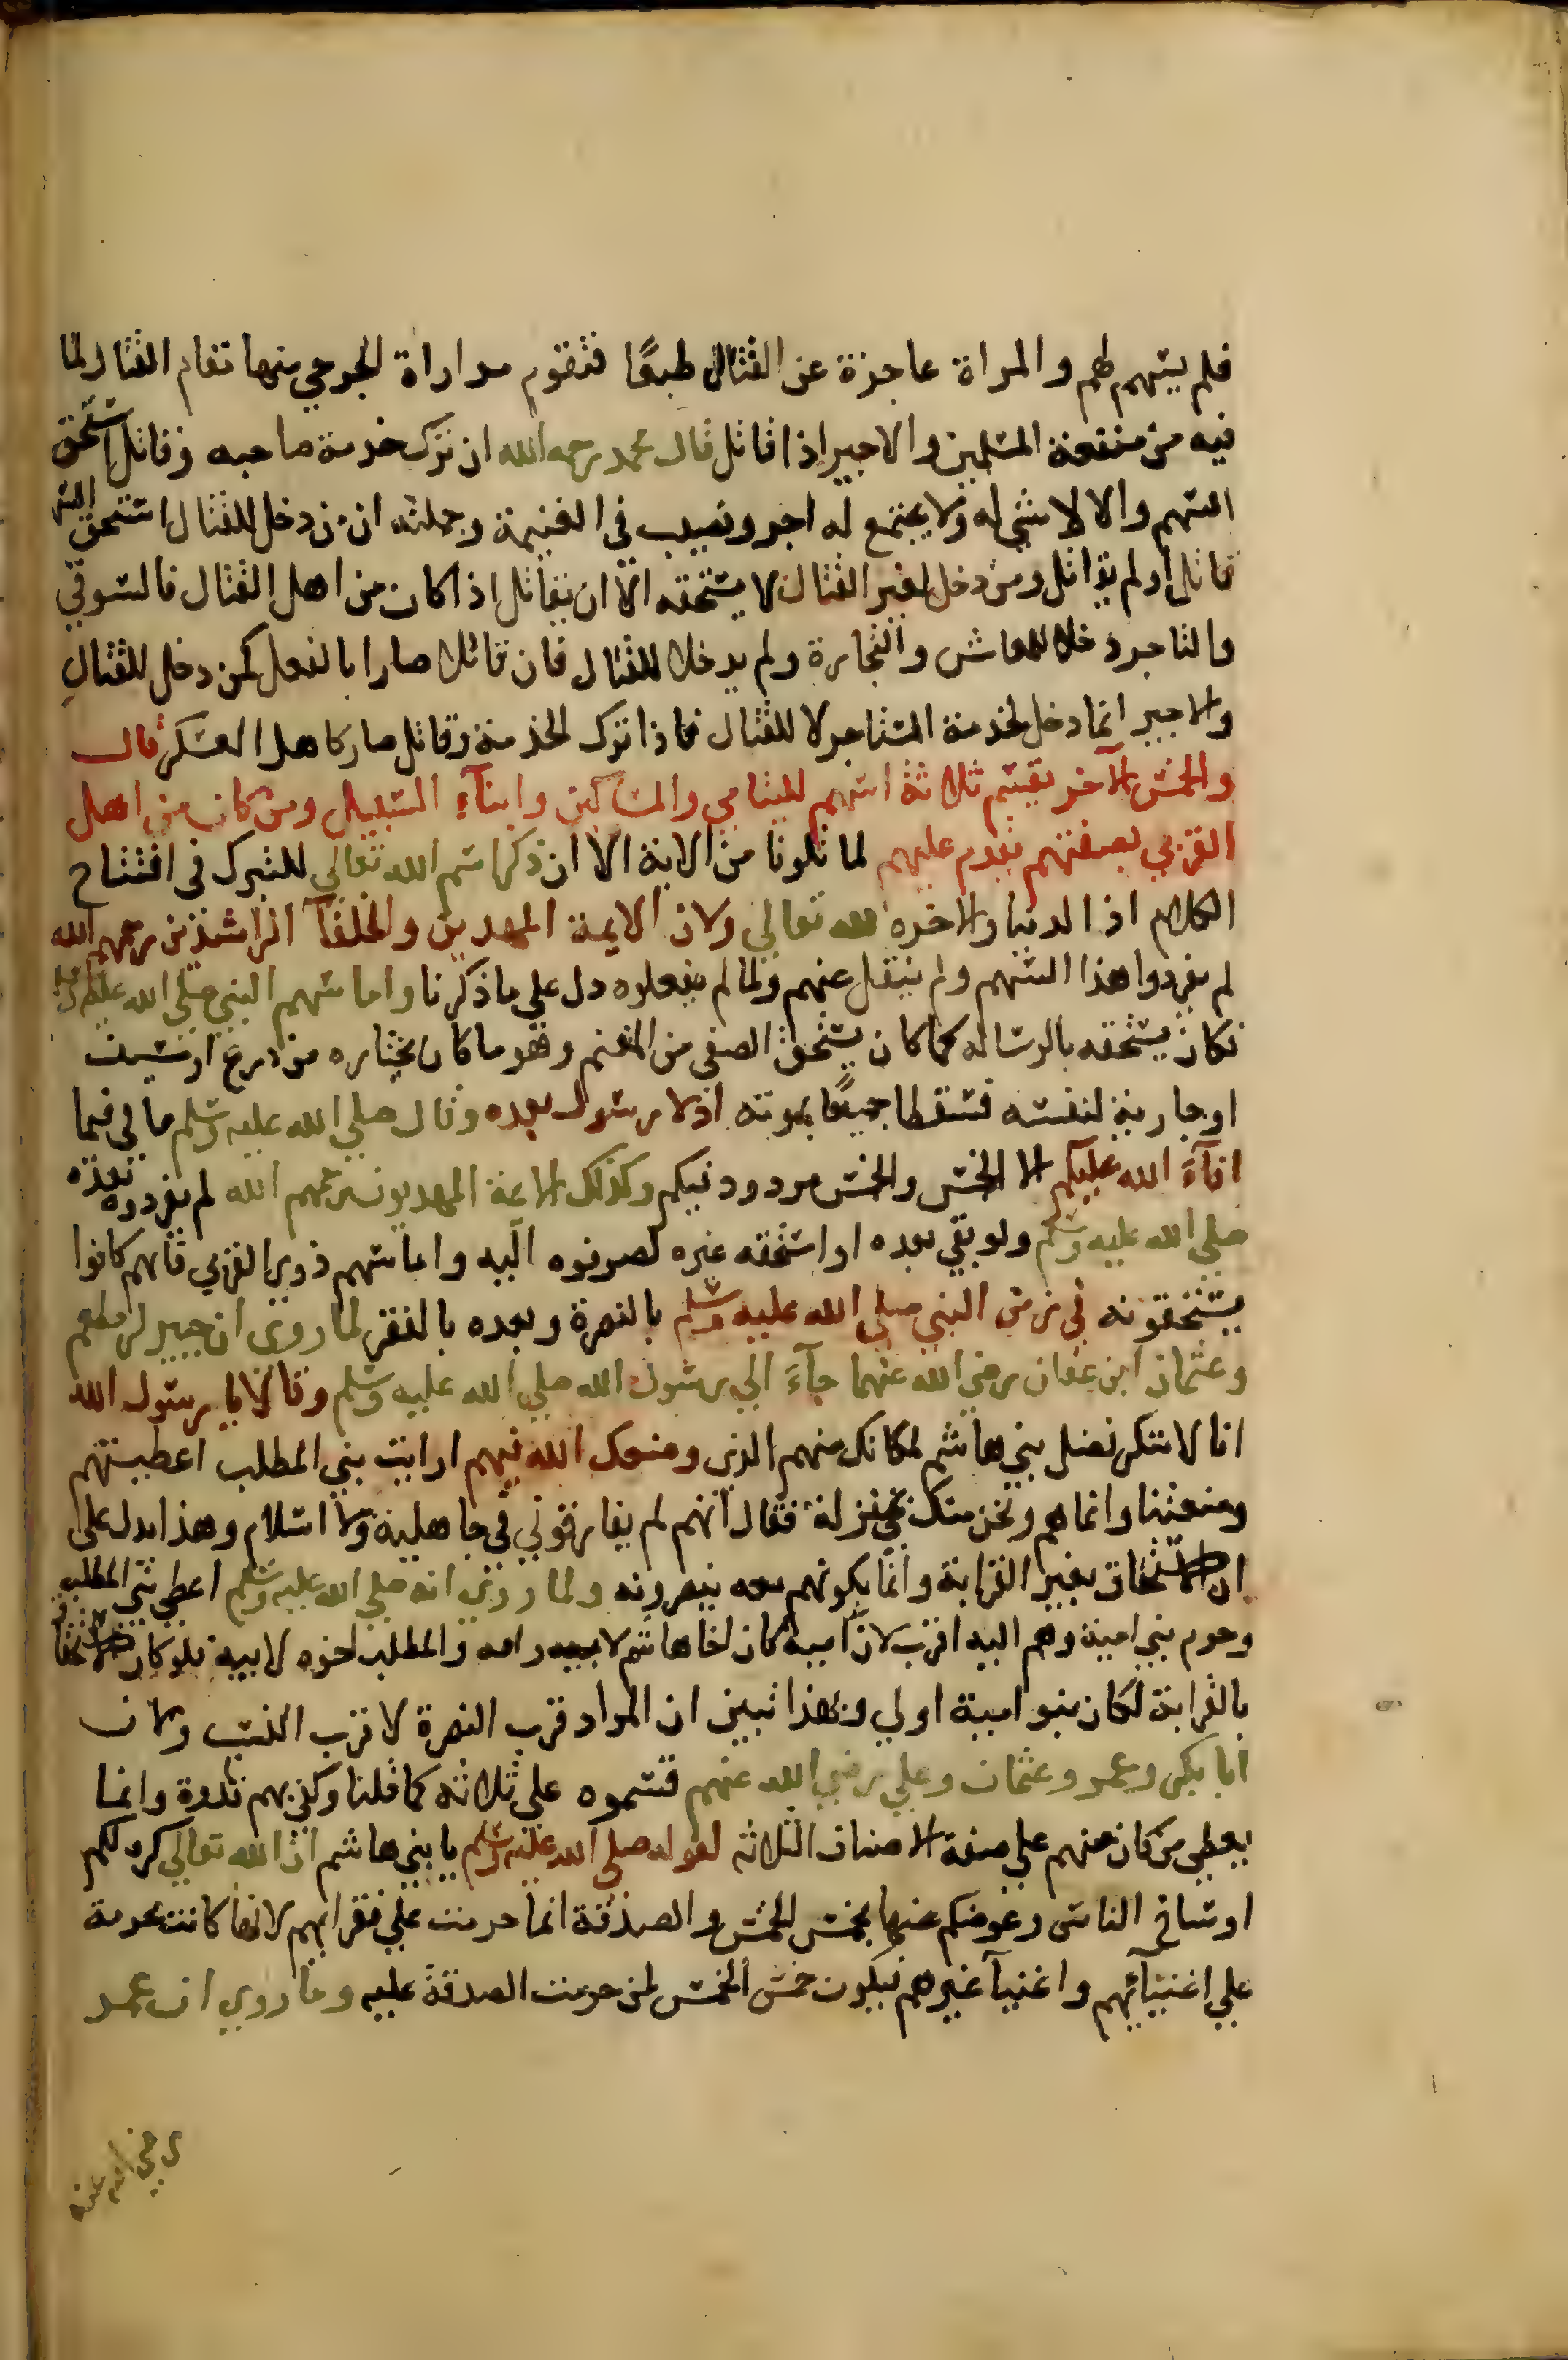 فلم يسهم لهم والمراة عاجزة عن القتال طبعًا فتقوم مداراة الجرحي منها مقام القتال لما
فيه من منفعة المسلمين والاجير اذا قاتل قال محمد رحمه الله ان ترك خدمة صاحبه وقاتل استحق
السهم والا لا شي له ولا يجتمع له اجر ونصيب في الغنيمة وجملته ان من دخل للقتال استحق السهم
قاتل او لم يقاتل ومن دخل لغير القتال لا يستحقه الا ان يقاتل اذا كان من اهل القتال فالسوقي
والتاجر دخلا للمعاش والتجارة ولم يدخلا للقتال فان قاتلا صارا بالفعل كمن دخل للقتال
والاجير انما دخل لخدمة المستاجر لا للقتال فاذا ترك الخدمة وقاتل صار كاهل العسكر قال
والخمس الآخر يقسم ثلاثة اسهم لليتامي والمساكين وابنآء السبيل ومن كان من اهل
القربي بصفتهم يقدم عليهم لما تلونا من الاية الا ان ذكر اسم الله تعالي للتبرك في افتتاح
الكلام اذ الدنيا والاخره لله تعالي ولان الايمة المهديين والخلفآ الراشدين رحمهم الله
لم يفردوا هذا السهم ولم ينقل عنهم ولما لم يفعلوه دل علي ما ذكرنا واما سهم النبي صلي الله عليه وسلم
فكان يستحقه بالرساله كما كان يستحق الصفي من المغنم وهو ما كان يختاره من درع او سيف
او جارية لنفسه فسقطا جميعًا بموته اذ لا رسول بعده وقال صلي الله عليه وسلم ما لي فيما
افآءَ الله عليكم الا الخمس والخمس مردود فيكم وكذلك الايمة المهديون رحمهم الله لم يفردوه بعده
صلي الله عليه وسلم ولو بقي بعده او استحقه غيره لصرفوه اليه واما سهم ذوي القربي فانهم كانوا
يستحقونه في زمن النبي صلي الله عليه وسلم بالنصرة وبعده بالفقر لما روى ان جبير بن مطعم
وعثمان ابن عفان رضي الله عنهما جآءَ الي رسول الله صلي الله عليه وسلم وقالا يا رسول الله
انا لا ننكر فضل بني هاشم لمكانك منهم الذي وضعك الله فيهم ارايت بني المطلب اعطيتهم
ومنعتنا وانما هم ونحن منك بمنزلة فقال انهم لم يفارقوني في جاهلية ولا اسلام وهذا يدل على
ان الاستحقاق بغير القرابة وانما بكونهم معه ينصرونه ولما روي انه صلي الله عليه وسلم اعطي بني المطلب
وحرم بني امية وهم اليه اقرب لان امية كان اخا هاشم لابيه وامه والمطلب اخوه لابيه فلو كان الاستحقاق
بالقرابة لكان بنو امية اولي وبهذا تبين ان المراد قرب النصرة لا قرب النسب ولان
ابا بكر وعمر وعثمان وعلي رضي الله عنهم قسموه علي ثلاثه كما قلنا وكفي بهم قدوة وانما
يعطي من كان منهم علي صفة الاصناف الثلاثه لقوله صلي الله عليه وسلم يا بني هاشم ان الله تعالي كره لكم
اوساخ الناس وعوضكم عنها بخمس الخمس والصدقة انما حرمت علي فقرايهم لانها كانت محرمة
علي اغنيآئهم واغنيآ غيرهم فيكون خمس الخمس لمن حرمت الصدقة عليه وما روي ان عمر
رضي الله عنه